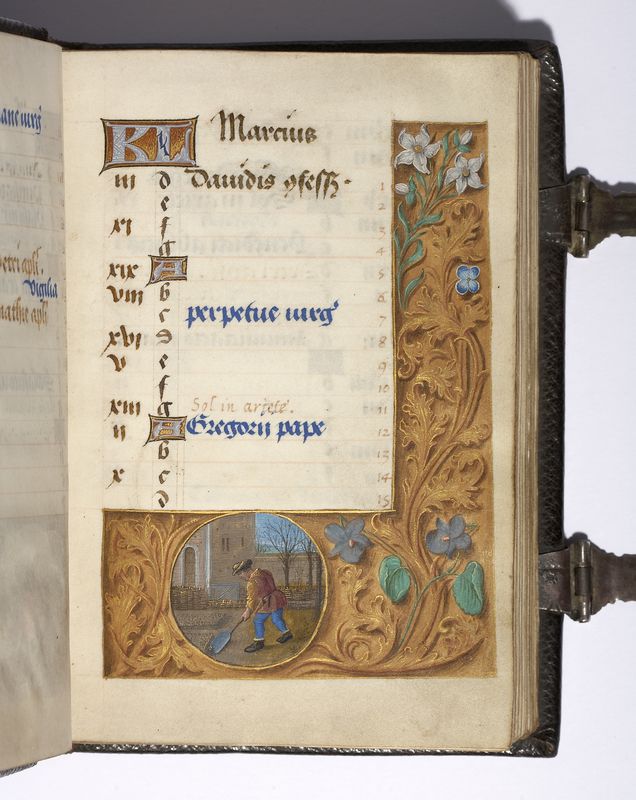 ane virg̕
petri apl̕.
Vigilia
mathie apl̕
KL Marcius
iii d Dauidis ꝯfess̕ 1
e 2
xi f 3
g 4
xix A 5
viii b 6
c perpetue uirg̕ 7
xvi d 8
v e 9
f 10
xiii g Sol in ariete. 11
ii A Gregorij pape 12
b 13
x c 14
d 15